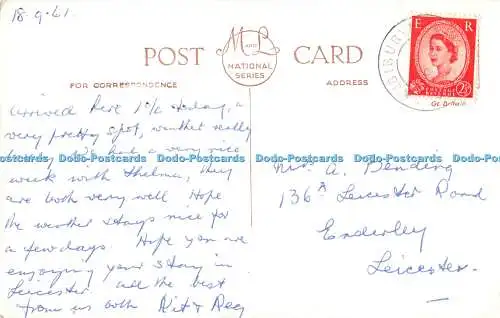 18-9-61.
POST CARD
M & L
AND
NATIONAL
SERIES
FOR CORRESPONDENCE
ADDRESS
E R
POSTAGE
REVENUE
2½D
Gt. Britain
arrived here Sunday, a
very pretty spot, weather really
had a very nice
week with Thelma, they
are both very well Hope
the weather stays nice for
a few days. Hope you are
enjoying your stay in
Leicester all the best
from us both Rit & Reg
A. Bending
136A Leicester Road
Enderley
Leicester.
Dodo-Postcards Dodo-Postcards Dodo-Postcards Dodo-Postcards Dodo-Postcards